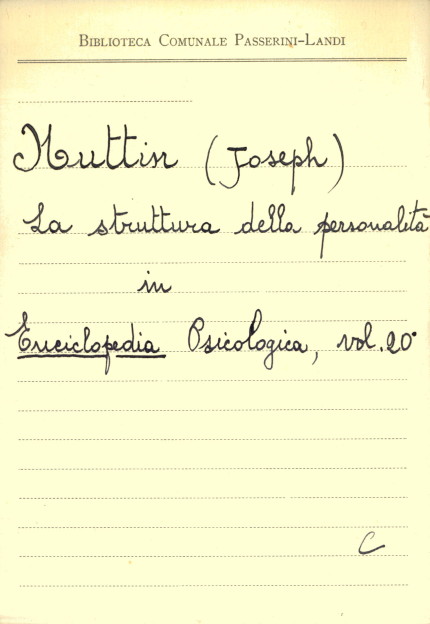 BIBLIOTECA COMUNALE PASSERINI-LANDI
Nuttin (Joseph)
La struttura della personalità
in
Enciclopedia Psicologica, vol. 20°
C